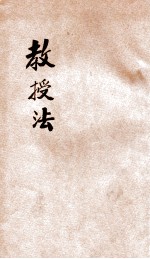 教授法